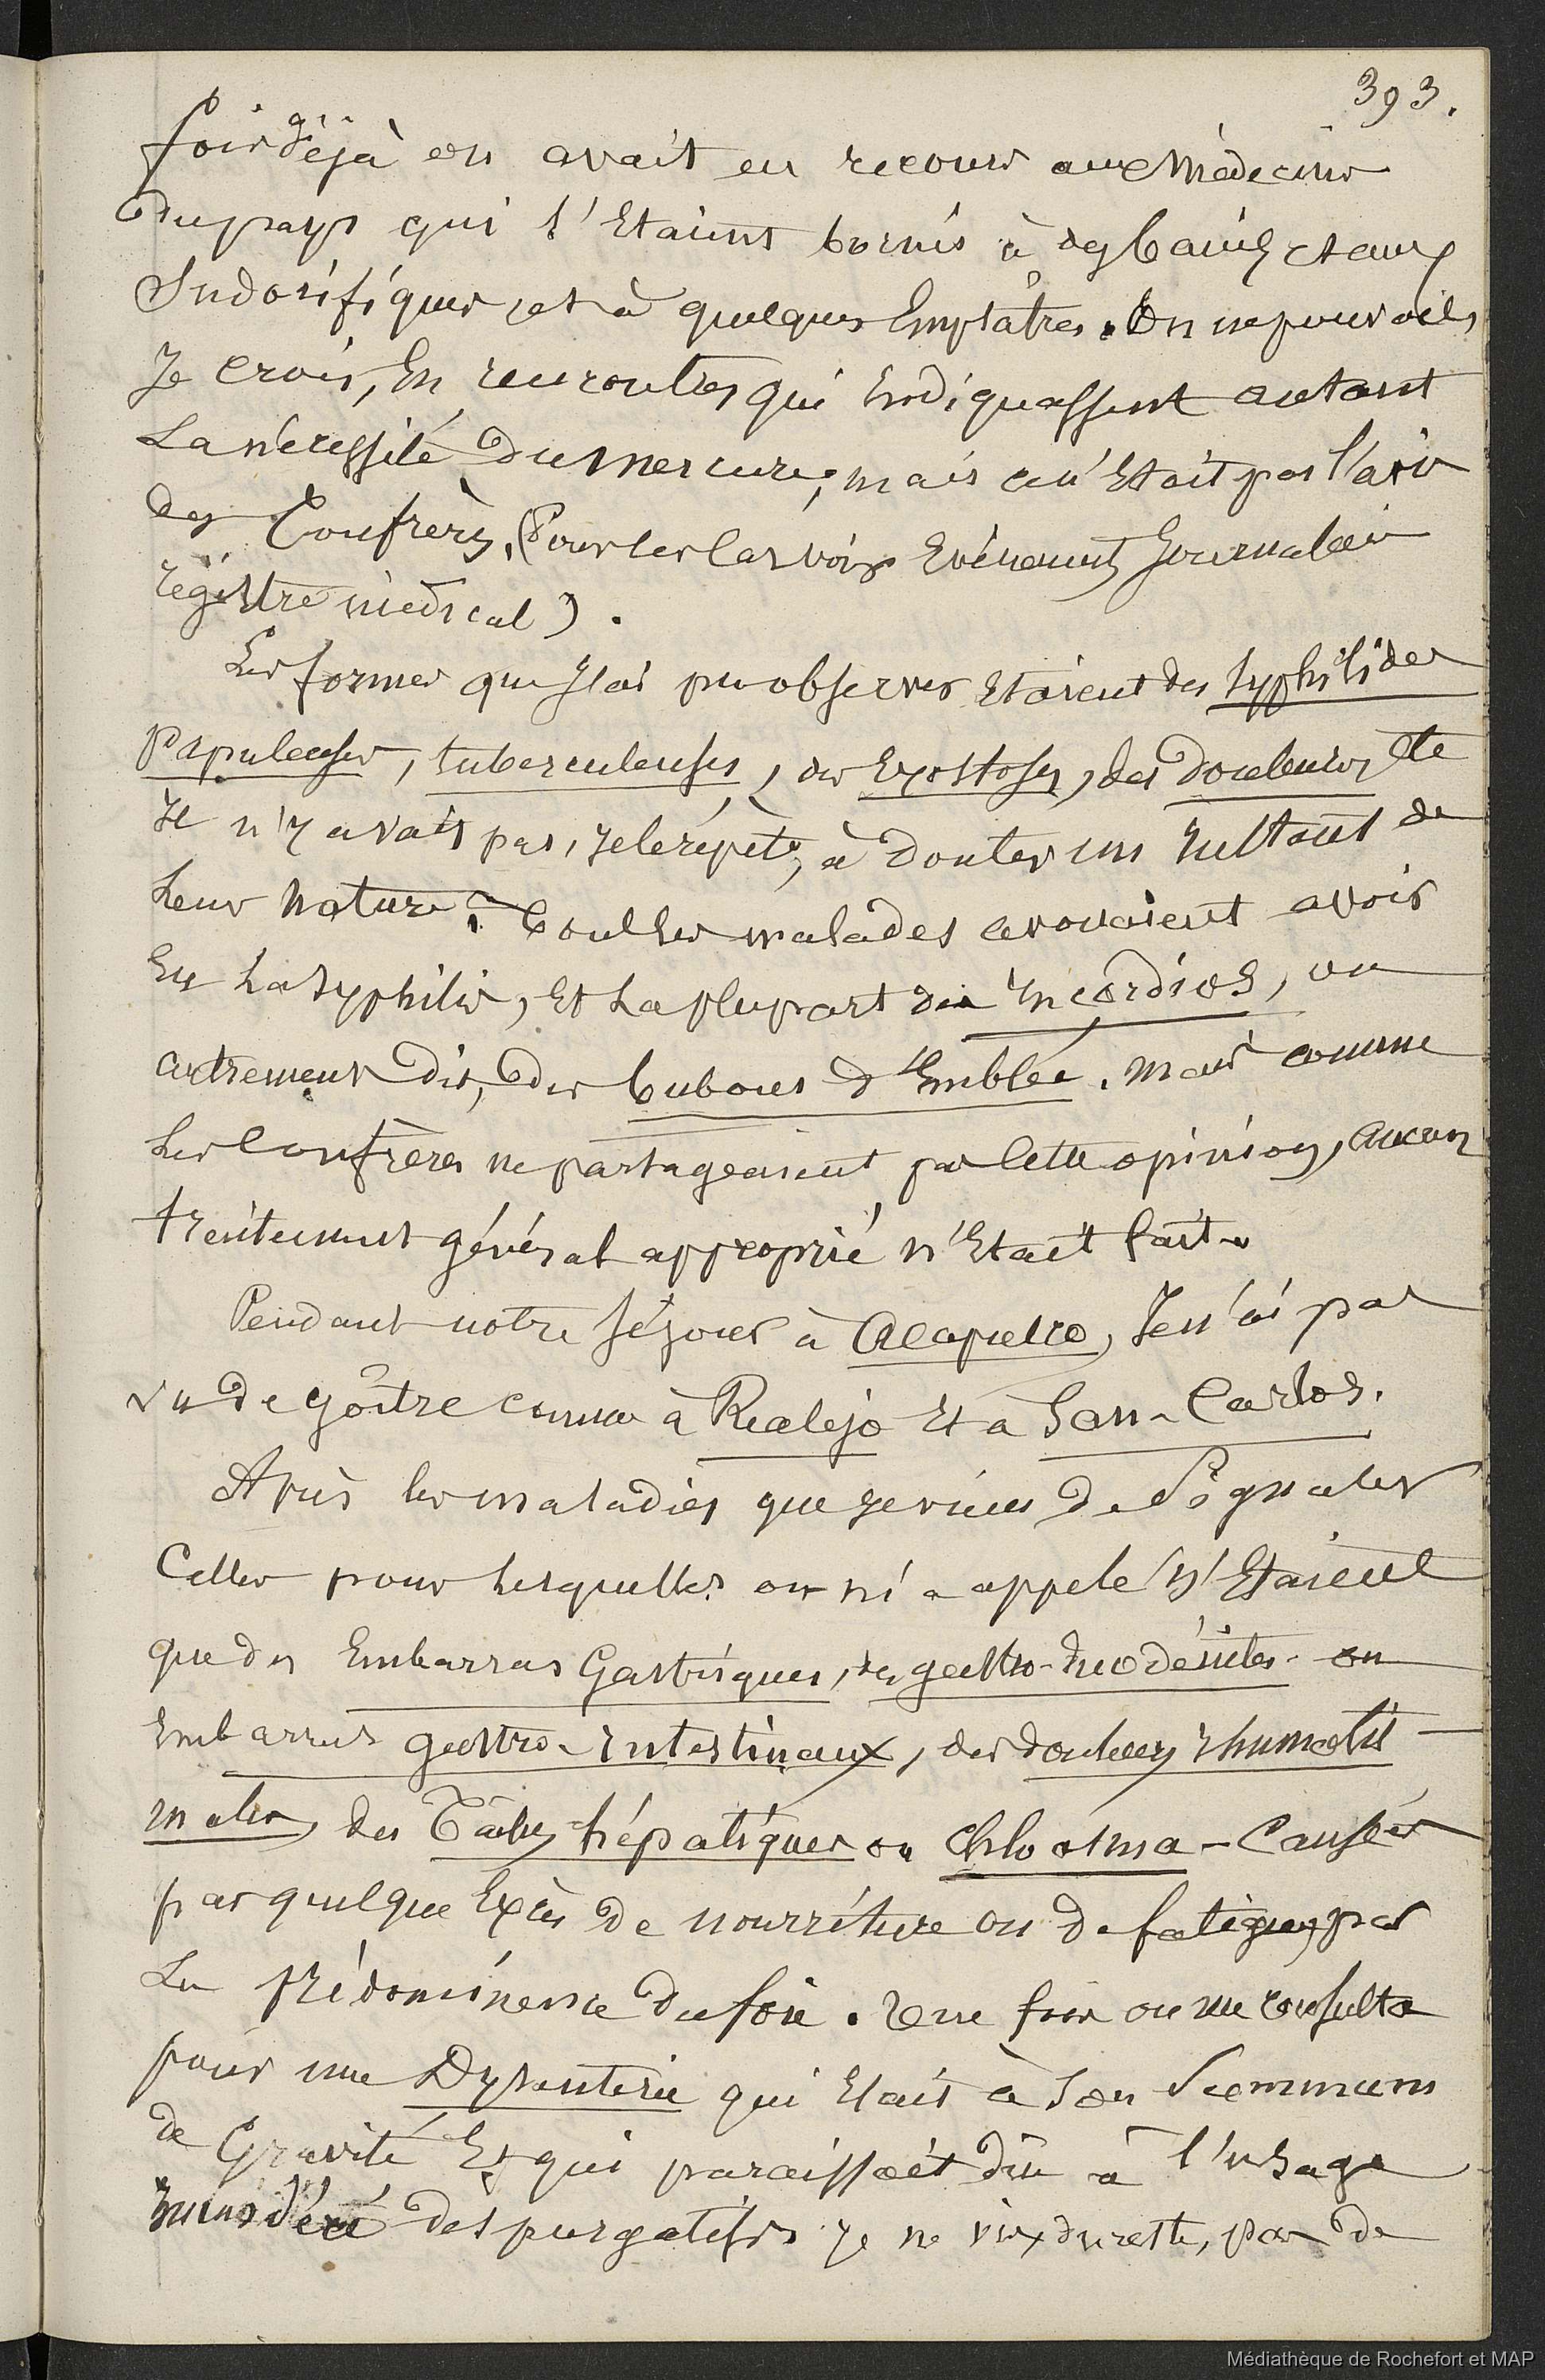 393.
fois déjà on avait eu recours aux Médecins
du pays qui s'Etaient bornés à des bains et aux
Sudorifiques et à quelques Emplâtres. On ne pouvait,
Je crois, En rencontrer qui Indiquassent autant
La nécessité du Mercure; mais ce n'Etait pas l'avis
des Confrères. (Pour les Cas voir Evènements Journaliers
régistre médical).
Les formes que J'ai pu observer Etaient des syphilides
Papuleuses, tuberculeuses, des Exostoses, des douleurs etc
Il n'y avait pas, Je le répète, à douter un Instant de
Leur Nature. Tous Les malades avouaient avoir
Eu La Syphilis, Et La plupart des Incordios, ou
autrement dit, des bubons d'Emblée. Mais comme
Les Confrères ne partageaient pas Cette opinion, Aucun
traitement général approprié n'Etait fait.
Pendant notre Séjour à Acapulco, Je n'ai pas
vu de goître comme à Realejo Et à San-Carlos.
Après les maladies que je viens de Signaler
Celles pour Lesquelles on m'a appelé N'Etaient
que des Embarras Gastriques, des gastro-duodénites ou
Embarras gastro-Intestinaux, des douleurs rhumatis-
males, des Tâches hépatiques ou Chloasma - Causées
par quelque Excès de nourriture ou de fatigue, par
La prédominence du foie. Une fois on me consulta
pour une Dysenterie qui Etait à Son Summum
de Gravité Et qui paraissait dûe à l'usage
Immodéré des purgatifs. Je ne vis du reste, pas de
Médiathèque de Rochefort et MAP